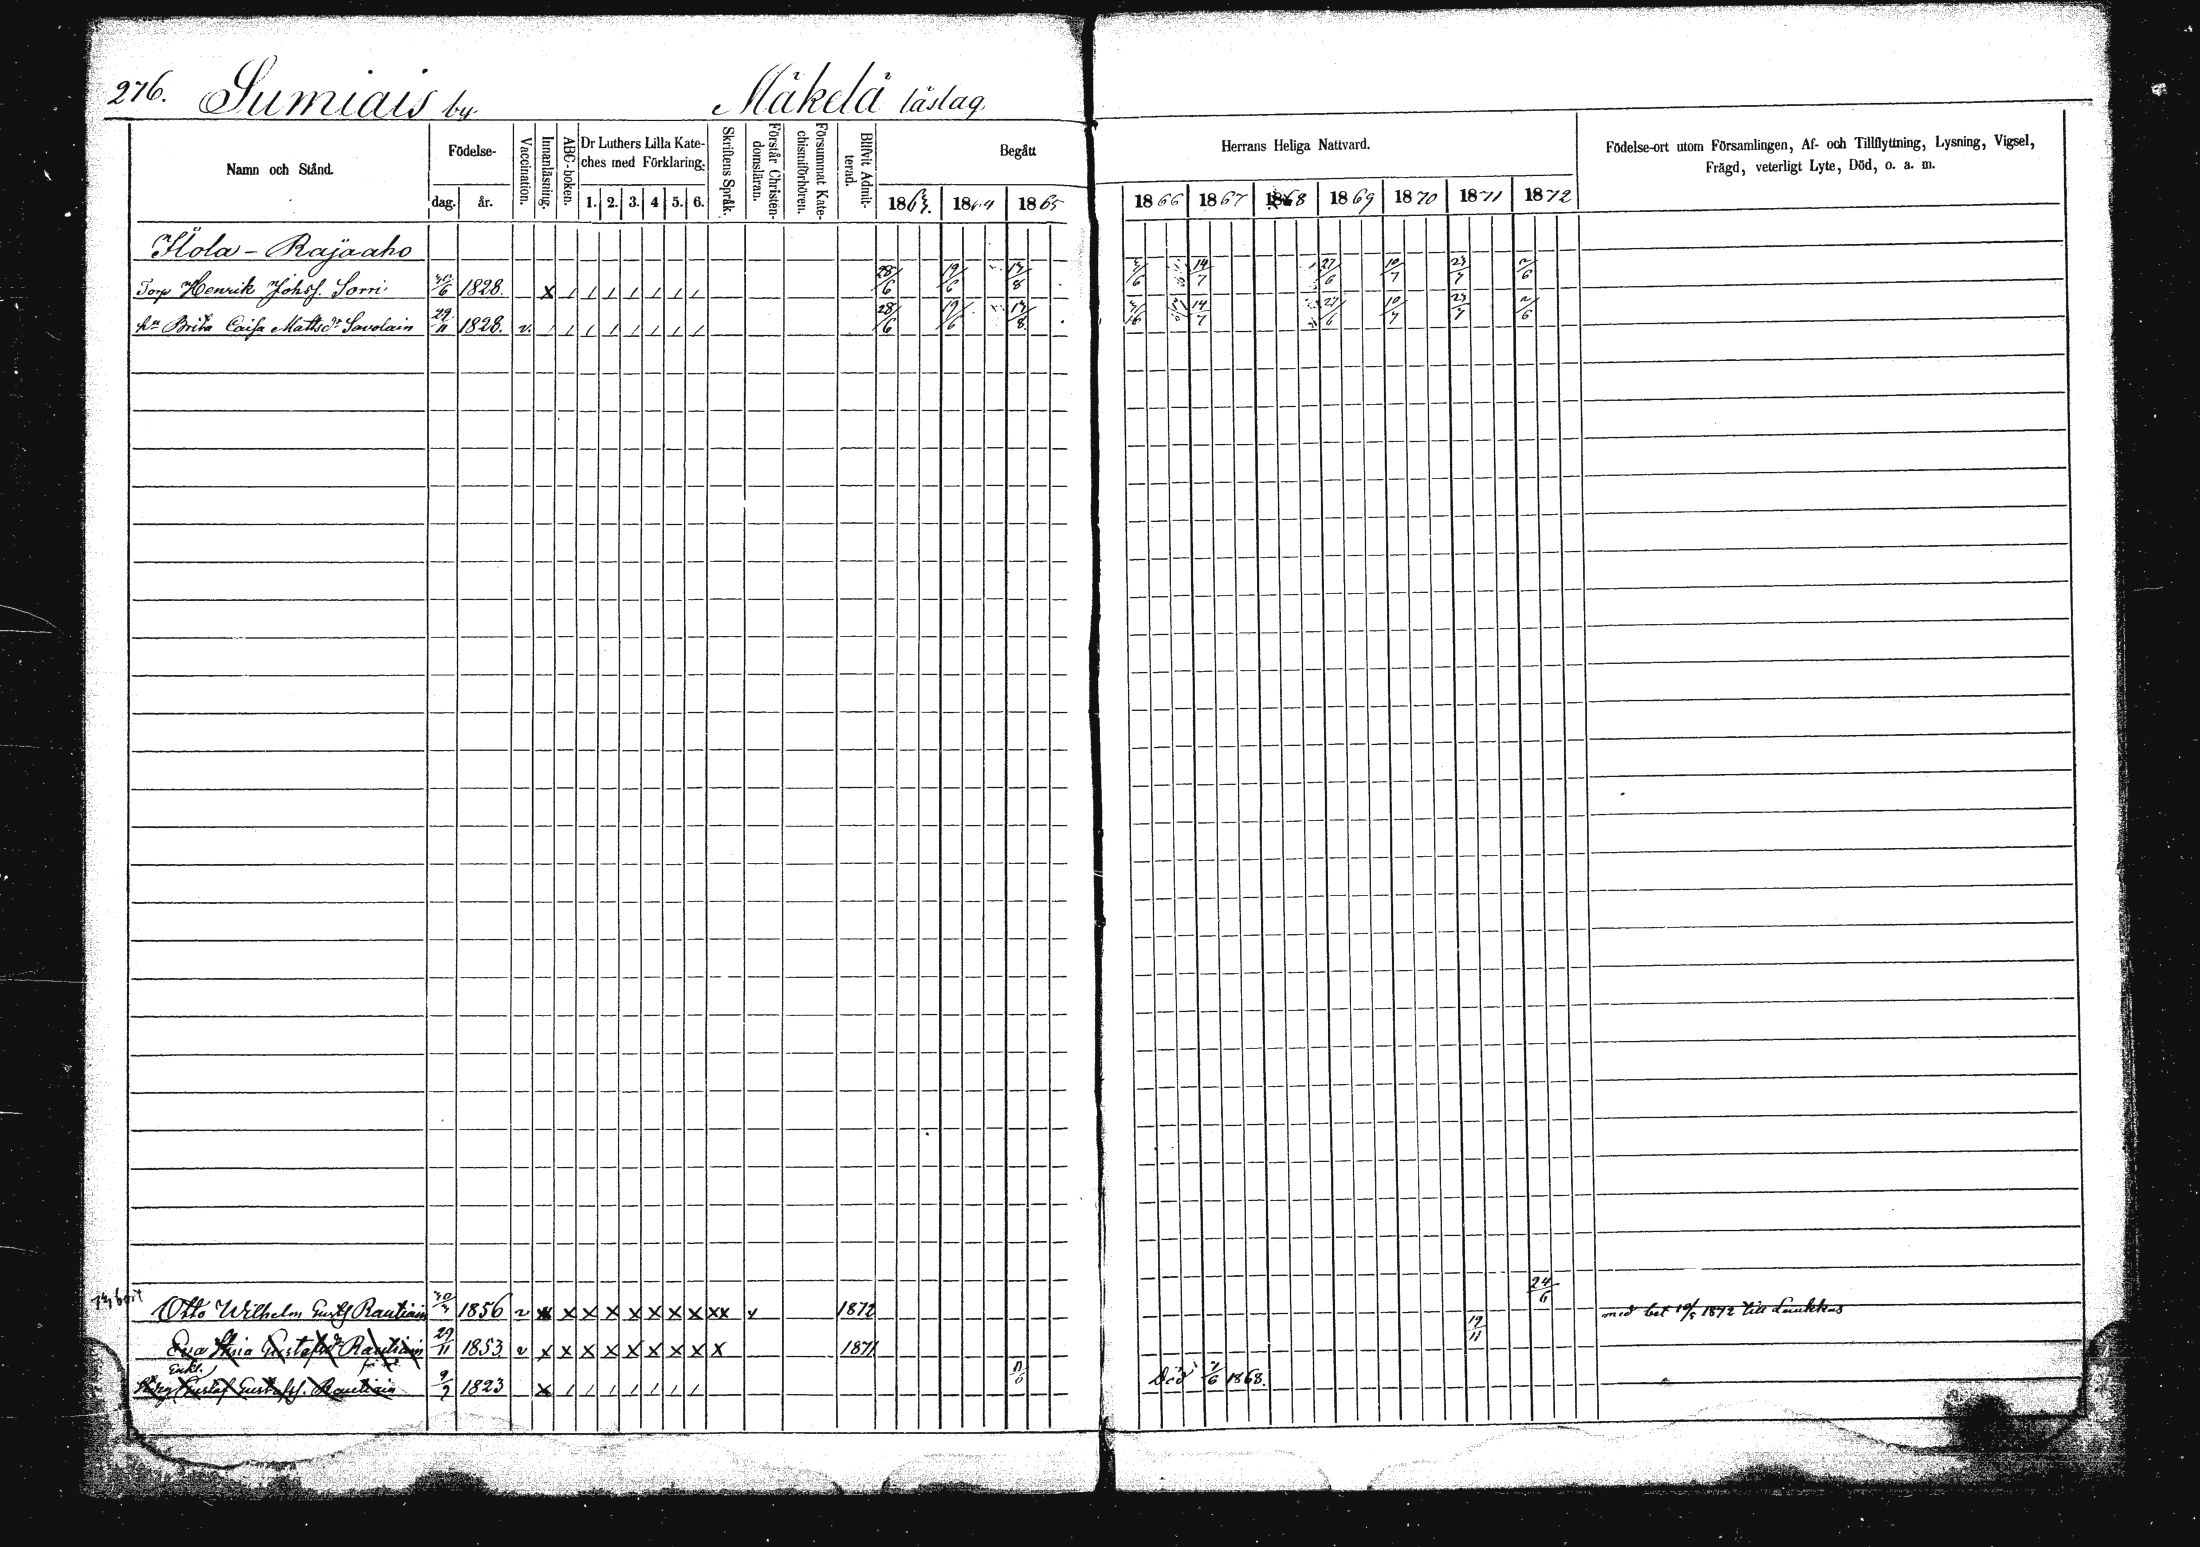 276. Sumiais by Mäkelä läslag
Namn och Stånd.
Födelse-
dag. år.
Vaccination.
Innanläsning.
ABC-boken.
Dr Luthers Lilla Kate-
ches med Förklaring.
1. 2. 3. 4 5. 6.
Skriftens Språk.
Förstår Christen-
domsläran.
Försummat Kate-
chismiförhören.
Blifvit Admit-
terad.
Begått Herrans Heliga Nattvard.
1863. 1864 1865 1866 1867 1868 1869 1870 1871 1872
Födelse-ort utom Församlingen, Af- och Tillflyttning, Lysning, Vigsel,
Frägd, veterligt Lyte, Död, o. a. m.
Rajaaho
Torp Henrik Johsf. Sorri 30/6 1828. x / / / / / / / 28/6 19/6 13/8 3/6 14/7 27/6 10/7 23/7 2/6
hu Brita Caisa Mattsdr Savolain 29/11 1828. v. / / / / / / / / 28/6 19/6 13/8 14/7 27/6 10/7 23/7 2/6
bort Otto Wilhelm Gustf Rautiain 30/3 1856 v x x x x x x x x xx v 1872 24/6 med bet 1872 till Lunkkas
Eva Gustafsdr Rautiain 29/11 1853 v x x x x x x x x x 1871 19/11
Enkl.
Gustaf Gustafsf. Rautiain 9/9 1823 x / / / / / / / Död 1868.